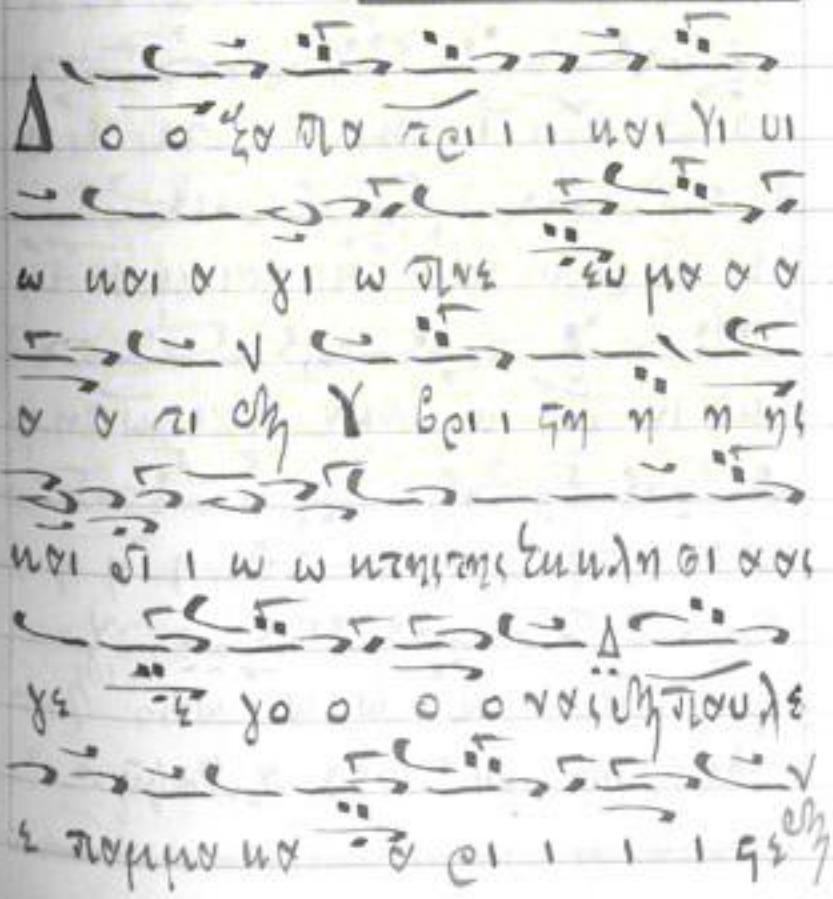 Δ ο ο ξα πα τρι ι ι και γι υι
ω και α γι ω πνε ευ μα α α
α α τι Υ βρι ι ςη η η ης
και δι ι ω ω κτης της Εκκλη σι α ας
γε ε γο ο ο ο νας Παυλε
ε παμμα κα α ρι ι ι ι ςε